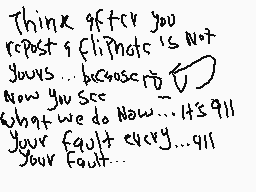 Think after you
repost a flipnote is not
yours... because
now you see
what we do now... it's all
your fault every... all
your fault...